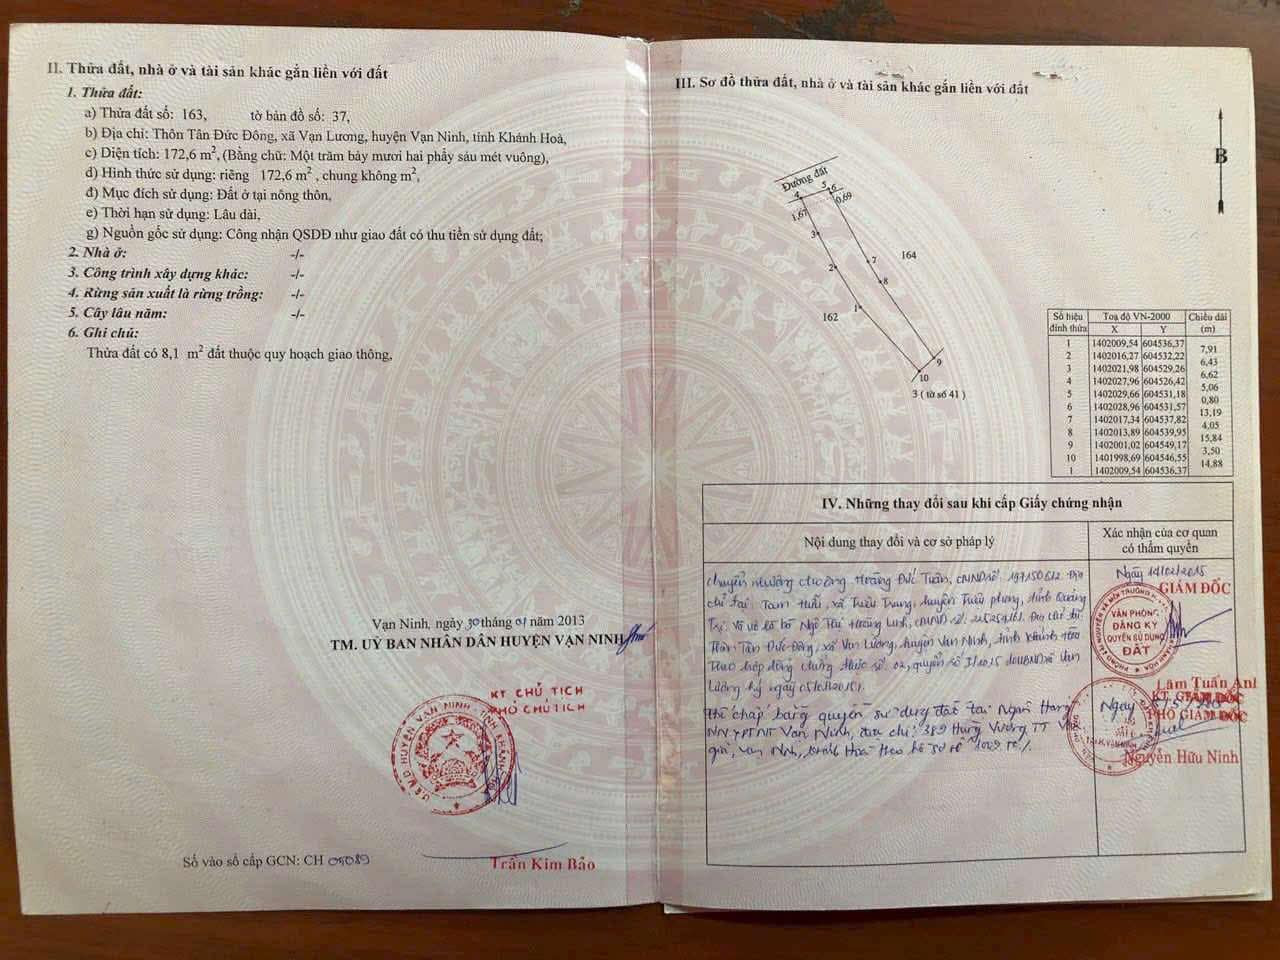 II. Thửa đất, nhà ở và tài sản khác gắn liền với đất
1. Thửa đất:
a) Thửa đất số: 163, tờ bản đồ số: 37,
b) Địa chỉ: Thôn Tân Đức Đông, xã Vạn Lương, huyện Vạn Ninh, tỉnh Khánh Hoà,
c) Diện tích: 172,6 m², (Bằng chữ: Một trăm bảy mươi hai phẩy sáu mét vuông),
d) Hình thức sử dụng: riêng 172,6 m², chung không m²,
đ) Mục đích sử dụng: Đất ở tại nông thôn,
e) Thời hạn sử dụng: Lâu dài,
g) Nguồn gốc sử dụng: Công nhận QSDĐ như giao đất có thu tiền sử dụng đất;
2. Nhà ở: -/-
3. Công trình xây dựng khác: -/-
4. Rừng sản xuất là rừng trồng: -/-
5. Cây lâu năm: -/-
6. Ghi chú:
Thửa đất có 8,1 m² đất thuộc quy hoạch giao thông,
Vạn Ninh, ngày 30 tháng 01 năm 2013
TM. UỶ BAN NHÂN DÂN HUYỆN VẠN NINH
KT CHỦ TỊCH
PHÓ CHỦ TỊCH
Trần Kim Bảo
Số vào sổ cấp GCN: CH 04089
III. Sơ đồ thửa đất, nhà ở và tài sản khác gắn liền với đất
B
Đường đất
4 5 6
1,67 0,69
3
2 7
164
8
1
162
9
10
3 ( tờ số 41 )
Số hiệu đỉnh thửa Toạ độ VN-2000 Chiều dài (m)
X Y
1 1402009,54 604536,37
7,91
2 1402016,27 604532,22
6,43
3 1402021,98 604529,26
6,62
4 1402027,96 604526,42
5,06
5 1402029,66 604531,18
0,80
6 1402028,96 604531,57
13,19
7 1402017,34 604537,82
4,05
8 1402013,89 604539,95
15,84
9 1402001,02 604549,17
3,50
10 1401998,69 604546,55
14,88
1 1402009,54 604536,37
IV. Những thay đổi sau khi cấp Giấy chứng nhận
Nội dung thay đổi và cơ sở pháp lý
Xác nhận của cơ quan có thẩm quyền
Chuyển nhượng cho ông Hoàng Đức Tuân, CMND số: 197150612. Địa
chỉ tại: Tam Hữu, xã Triệu Trung, huyện Triệu Phong, tỉnh Quảng
Trị. Và vợ là bà Ngô Thị Hoàng Linh, CMND số: Địa chỉ tại:
Thôn Tân Đức Đông, xã Vạn Lương, huyện Vạn Ninh, tỉnh Khánh Hòa
Theo hợp đồng chứng thực số 02, quyển số UBND xã Vạn
Lương ký ngày
Thế chấp bằng quyền sử dụng đất tại Ngân Hàng
NN & PTNT Vạn Ninh, địa chỉ: 389 Hùng Vương TT Vạn
giã, Vạn Ninh, Khánh Hòa theo hồ sơ số
Ngày 14/02/2015
GIÁM ĐỐC
VĂN PHÒNG
ĐĂNG KÝ
QUYỀN SỬ DỤNG
ĐẤT
Lâm Tuấn Anh
KT. GIÁM ĐỐC
PHÓ GIÁM ĐỐC
Ngày
Nguyễn Hữu Ninh